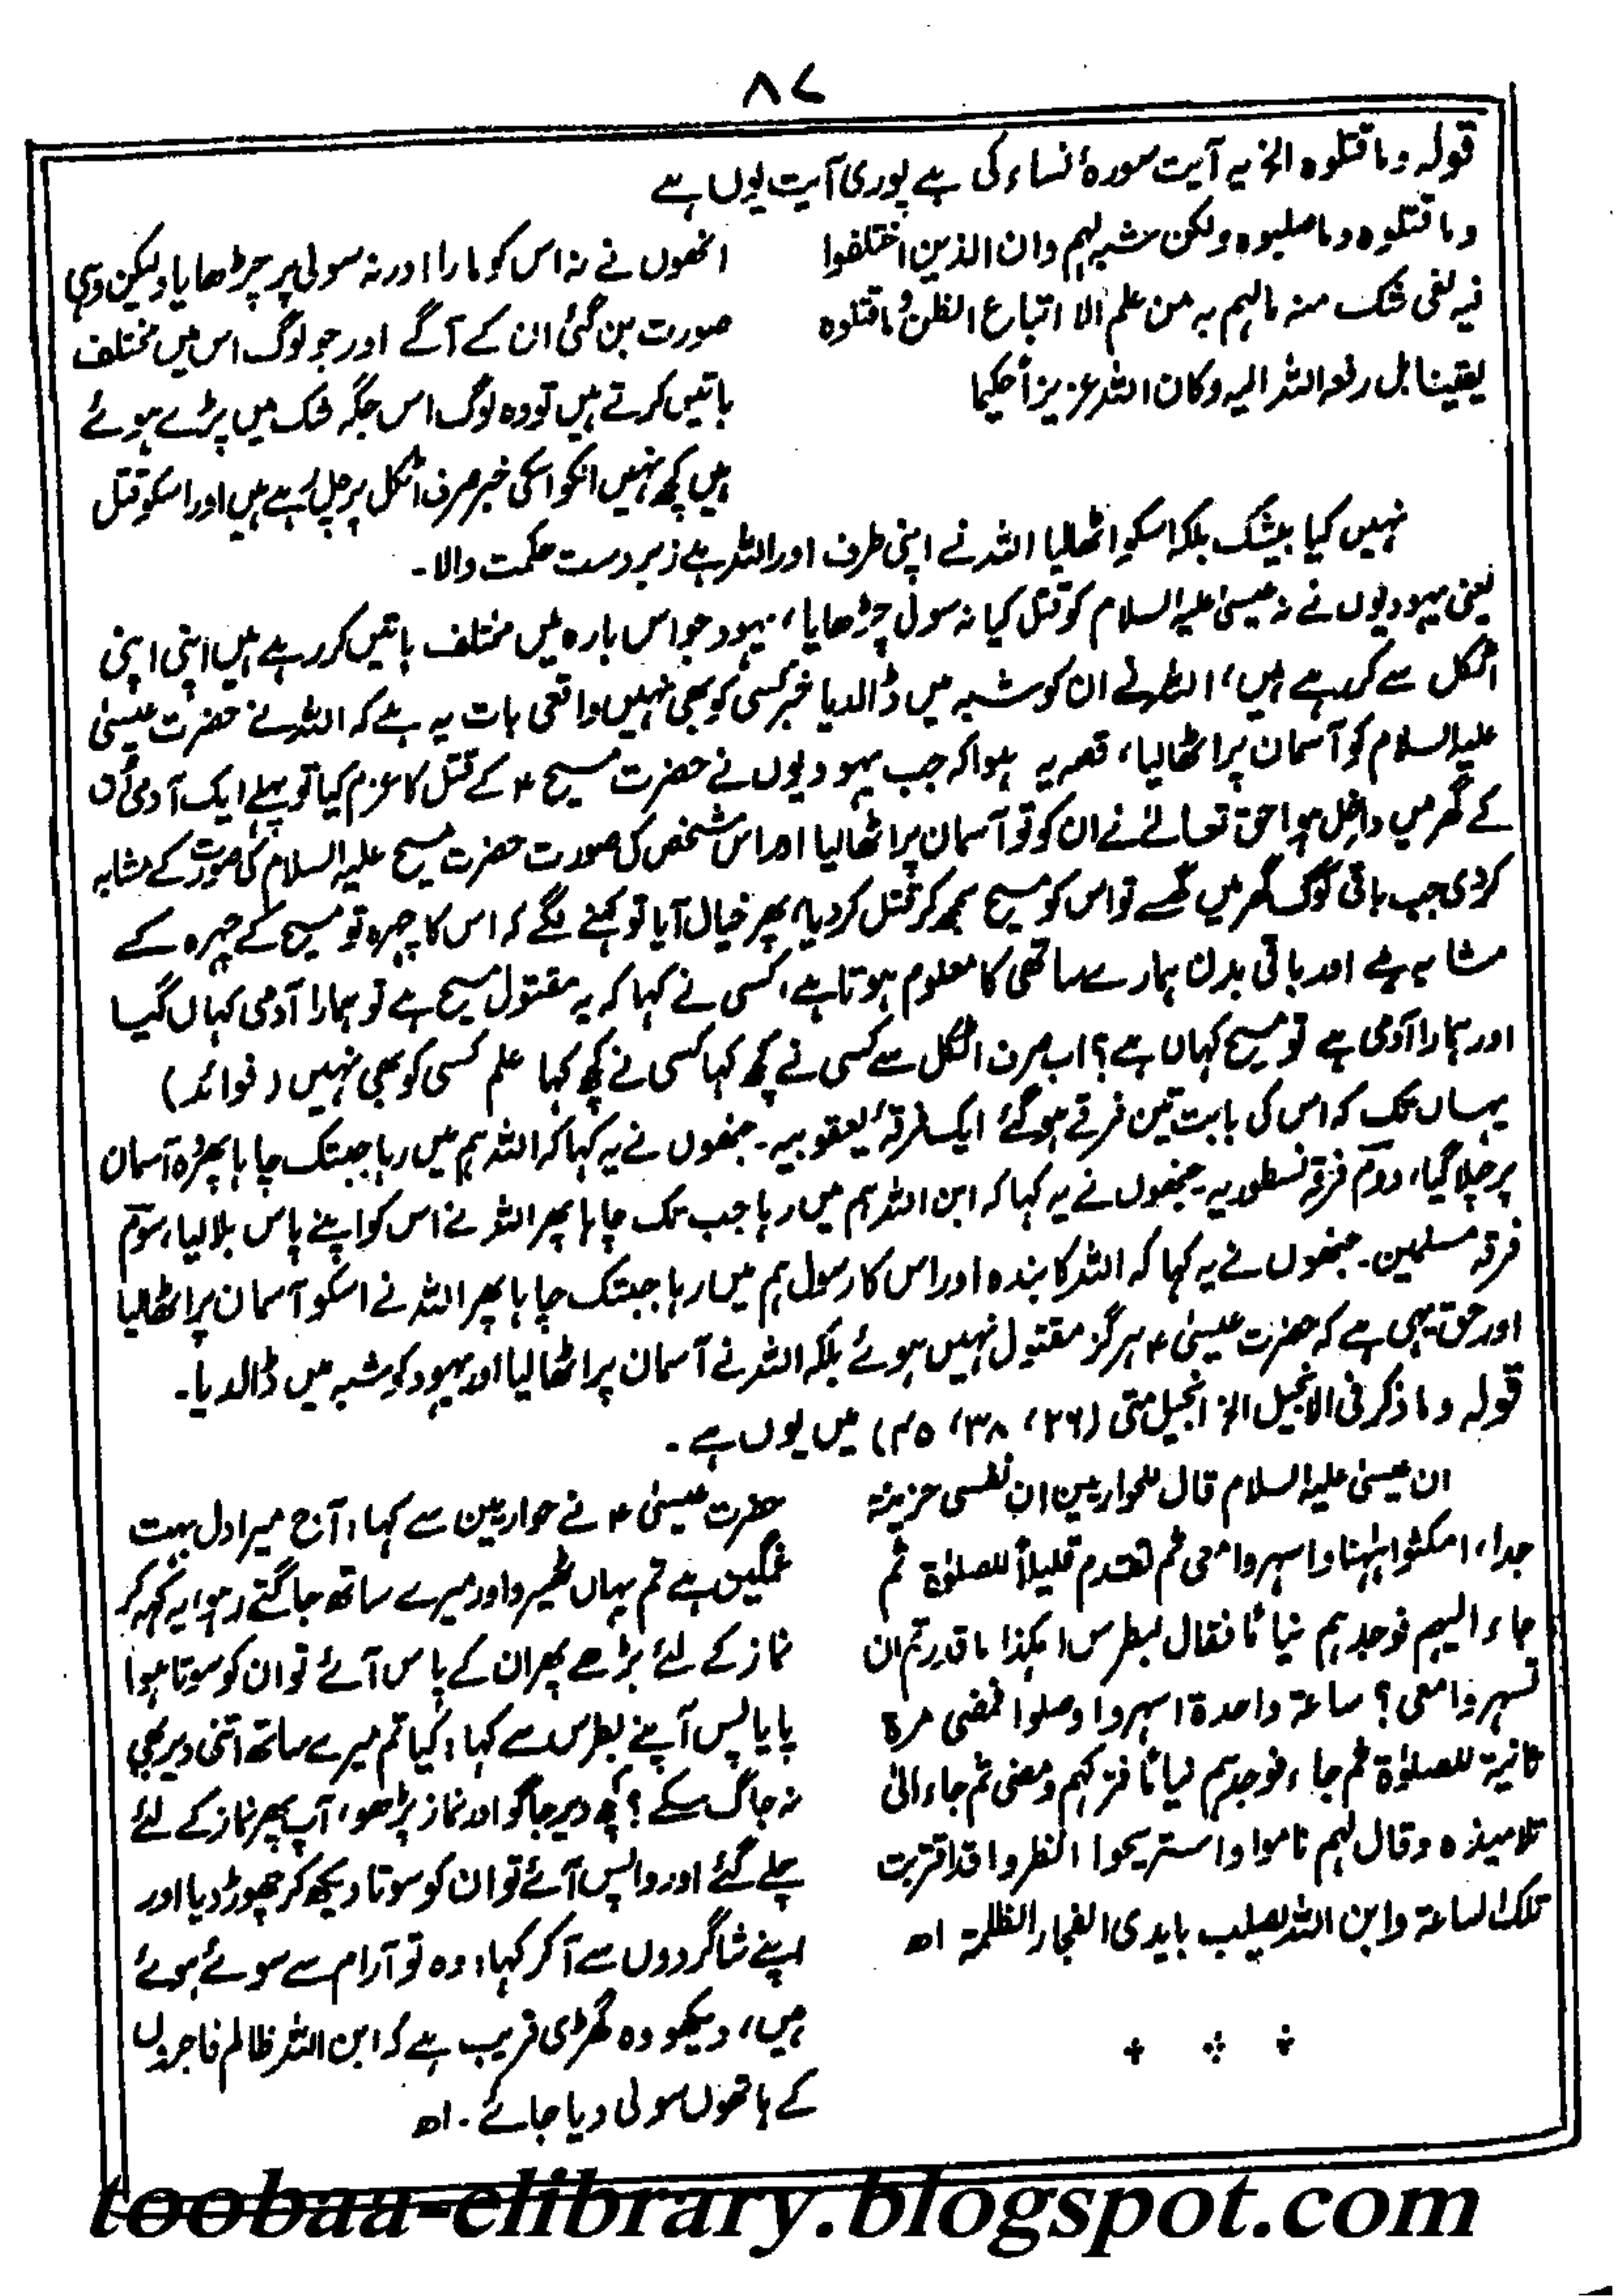 ۸۷
قولہ وما قتلوہ الخ یہ آیت سورۂ نساء کی ہے پوری آیت یوں ہے
وما قتلوہ وما صلبوہ ولکن شبہ لہم وان الذین اختلفوا
فیہ لفی شک منہ مالہم بہ من علم الا اتباع الظن وما قتلوہ
یقینا بل رفعہ اللہ الیہ وکان اللہ عزیزاً حکیما
انھوں نے نہ اس کو مارا اور نہ سولی پر چڑھایا ولیکن وہی
صورت بن گئی ان کے آگے اور جو لوگ اس میں مختلف
باتیں کرتے ہیں تو وہ لوگ اس جگہ شک میں پڑے ہوئے
ہیں کچھ نہیں انکو اسکی خبر صرف اٹکل پر چل رہے ہیں اور اسکو قتل
نہیں کیا بیشک بلکہ اسکو اٹھالیا اللہ نے اپنی طرف اور اللہ ہے زبردست حکمت والا۔
یعنی یہودیوں نے نہ عیسیٰ علیہ السلام کو قتل کیا نہ سولی چڑھایا، یہود جو اس بارہ میں مختلف باتیں کر رہے ہیں اپنی اپنی
اٹکل سے کر رہے ہیں، اللہ نے ان کو شبہ میں ڈالدیا خبر کسی کو بھی نہیں واقعی بات یہ ہے کہ اللہ نے حضرت عیسیٰ
علیہ السلام کو آسمان پر اٹھالیا، قصہ یہ ہوا کہ جب یہودیوں نے حضرت مسیحؑ کے قتل کا عزم کیا تو پہلے ایک آدمی ان
کے گھر میں داخل ہوا حق تعالےٰ نے ان کو تو آسمان پر اٹھالیا اور اس شخص کی صورت حضرت مسیح علیہ السلام کی صورت کے مشابہ
کر دی جب باقی لوگ گھر میں گھسے تو اس کو مسیح سمجھ کر قتل کر دیا، پھر خیال آیا تو کہنے لگے کہ اس کا چہرہ تو مسیح کے چہرہ کے
مشابہ ہے اور باقی بدن ہمارے ساتھی کا معلوم ہوتا ہے، کسی نے کہا کہ یہ مقتول مسیح ہے تو ہمارا آدمی کہاں گیا
اور ہمارا آدمی ہے تو مسیح کہاں ہے؟ اب صرف اٹکل سے کسی نے کچھ کہا کسی نے کچھ کہا علم کسی کو بھی نہیں (فوائد)
یہاں تک کہ اس کی بابت تین فرقے ہوگئے ایک فرقہ یعقوبیہ۔ جنھوں نے یہ کہا کہ اللہ ہم میں رہا جبتک چاہا پھر وہ آسمان
پر چلا گیا، دوم فرقہ نسطوریہ۔ جنھوں نے یہ کہا کہ ابن اللہ ہم میں رہا جب تک چاہا پھر اللہ نے اس کو اپنے پاس بلالیا، سوم
فرقہ مسلمین۔ جنھوں نے یہ کہا کہ اللہ کا بندہ اور اس کا رسول ہم میں رہا جبتک چاہا پھر اللہ نے اسکو آسمان پر اٹھالیا
اور حق یہی ہے کہ حضرت عیسیٰؑ ہرگز مقتول نہیں ہوئے بلکہ اللہ نے آسمان پر اٹھالیا اور یہود کو شبہ میں ڈالدیا۔
قولہ وما ذکر فی الانجیل الخ انجیل متی (۲۶، ۳۸، ۴۵) میں یوں ہے۔
ان عیسیٰ علیہ السلام قال للحواریین ان نفسی حزینۃ
جدا، امکثوا ہٰہنا واسہروا معی ثم تقدم قلیلاً للصلوٰۃ ثم
جاء الیہم فوجدہم نیاًما فقال لبطرس اہکذا ما قدرتم ان
تسہروا معی؟ ساعۃ واحدۃ اسہروا وصلوا فمضی مرۃ
ثانیۃ للصلوٰۃ ثم جاء فوجدہم نیاًما فترکہم ومضی ثم جاء الیٰ
تلامیذہ وقال لہم ناموا واستریحوا انظروا قد اقتربت
تلک الساعۃ وابن اللہ یصلب بایدی الفجار الظلمۃ اھ
حضرت عیسیٰؑ نے حواریین سے کہا، آج میرا دل بہت
غمگین ہے تم یہاں ٹھیرو اور میرے ساتھ جاگتے رہو، یہ کہہ کر
نماز کے لئے بڑھے پھر ان کے پاس آئے تو ان کو سوتا ہوا
پایا پس آپنے بطرس سے کہا، کیا تم میرے ساتھ اتنی دیر بھی
نہ جاگ سکے؟ کچھ دیر جاگو اور نماز پڑھو، آپ پھر نماز کے لئے
چلے گئے اور واپس آئے تو ان کو سوتا دیکھ کر چھوڑ دیا اور
اپنے شاگردوں سے آکر کہا، وہ تو آرام سے سوئے ہوئے
ہیں، دیکھو وہ گھڑی قریب ہے کہ ابن اللہ ظالم فاجروں
کے ہاتھوں سولی دیا جائے۔ اھ
toobaa-elibrary.blogspot.com